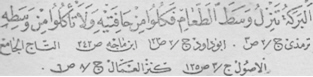 اَلْبَرَكَةُ تَنْزِلُ وَسَطَ الطَّعَامِ فَكُلُوْا مِنْ حَافَتَيْهِ وَلَا تَأْكُلُوْا مِنْ وَسَطِهِ
ترمذی ج/۲ ص۳ . ابوداود ج/۲ ص۱۳ ابن ماجہ ص۲۴۲ التاج الجامع
الاصول ج/۳ ص۱۲۵ کنز العمال ج/۸ ص۶